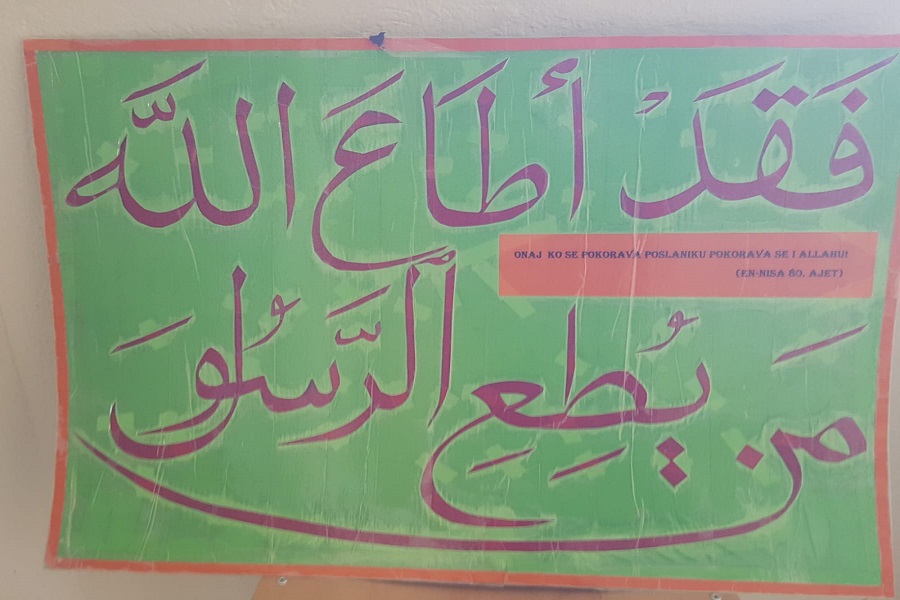 فَقَدْ أَطَاعَ اللَّه
ONAJ KO SE POKORAVA POSLANIKU POKORAVA SE I ALLAHU!
(EN-NISA 80. AJET)
مَن يُطِعِ ٱلرَّسُولَ